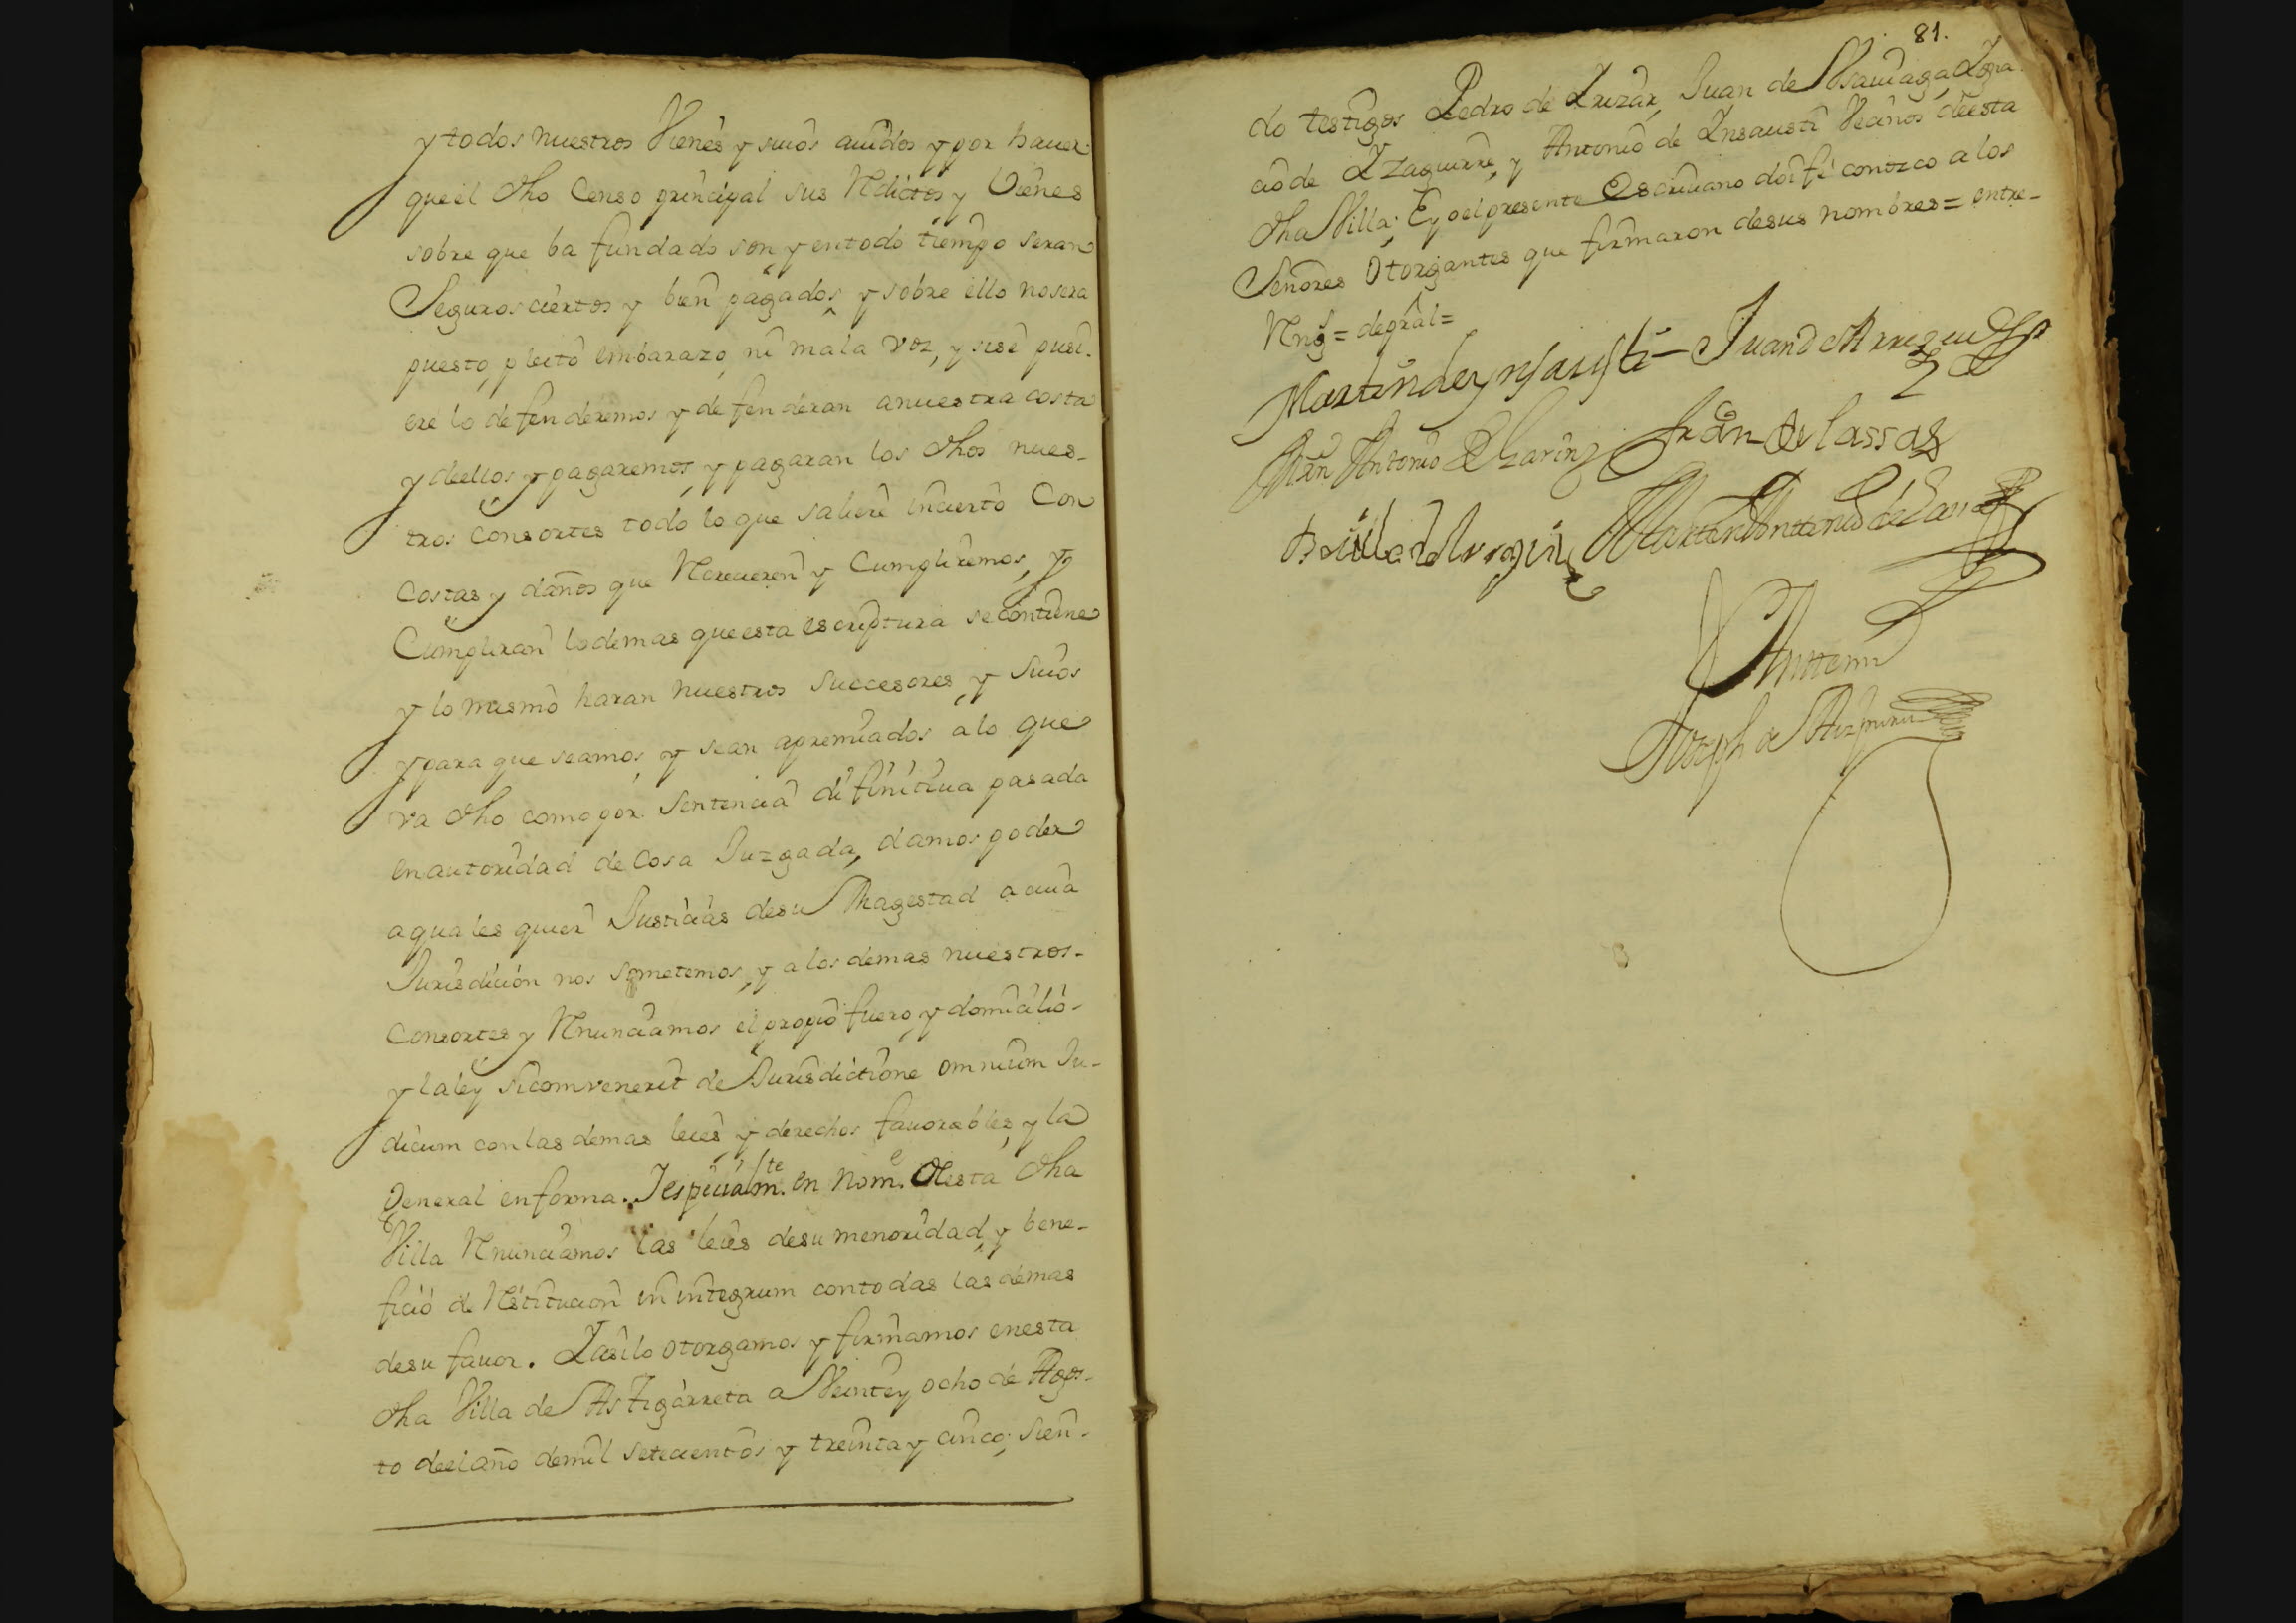 y todos nuestros Vienes y suios auidos y por hauer
que el dho Censo principal sus Reditos y Vienes
sobre que ba fundado son y entodo tiempo seran
Seguros ciertos y bien pagados y sobre ello no sera
puesto, pleito embarazo, ni mala voz, y si se pusi-
ere lo defenderemos y defenderan anuestra costa
y deellos y pagaremos, y pagaran los dhos nues-
tros Consortes todo lo que saliere Incierto Con
Costas y daños que Recreceren y Cumpliremos, y
Cumpliran lodemas que esta escriptura se contiene
y lo mismo haran nuestros Succesores, y Suios
y para que seamos, y sean apremiados a lo que
va dho como por Sentencia difinitiua pasada
en autoridad de Cosa Juzgada, damos poder
a quales quier Justicias de su Magestad a cuia
Jurisdicion nos sometemos, y a los demas nuestros
Consortes y Renunciamos el propio fuero, y domicilio
y la ley sicomvenerit de Jurisdictione omnium Ju-
dicum con las demas leies y derechos fauorables, y la
General en forma. Y espicialm.te en nom.e Desta dha
Villa Renunciamos las leies de su menoridad, y bene-
ficio de Restitucion in integrum contodas las demas
de su fauor. Y asilo otorgamos y firmamos en esta
dha Villa de Astigarreta a Veinte y ocho de Agos-
to deel año de mil setecientos y treinta y cinco, sien-
81.
do testigos Pedro de Irizar, Juan de Vsauiaga, Igna
cio de Yzaguirre, y Antonio de Insausti Vecinos deesta
dha Villa. E yo el presente Escriuano doi fé conozco a los
Señores Otorgantes que firmaron de sus nombres = entre-
Rngs = degral =
Martin de ynsausti Juan de
Antonio Fran de lassa
Martin Antonio de
Ante mi
Joseph de Aizpuru